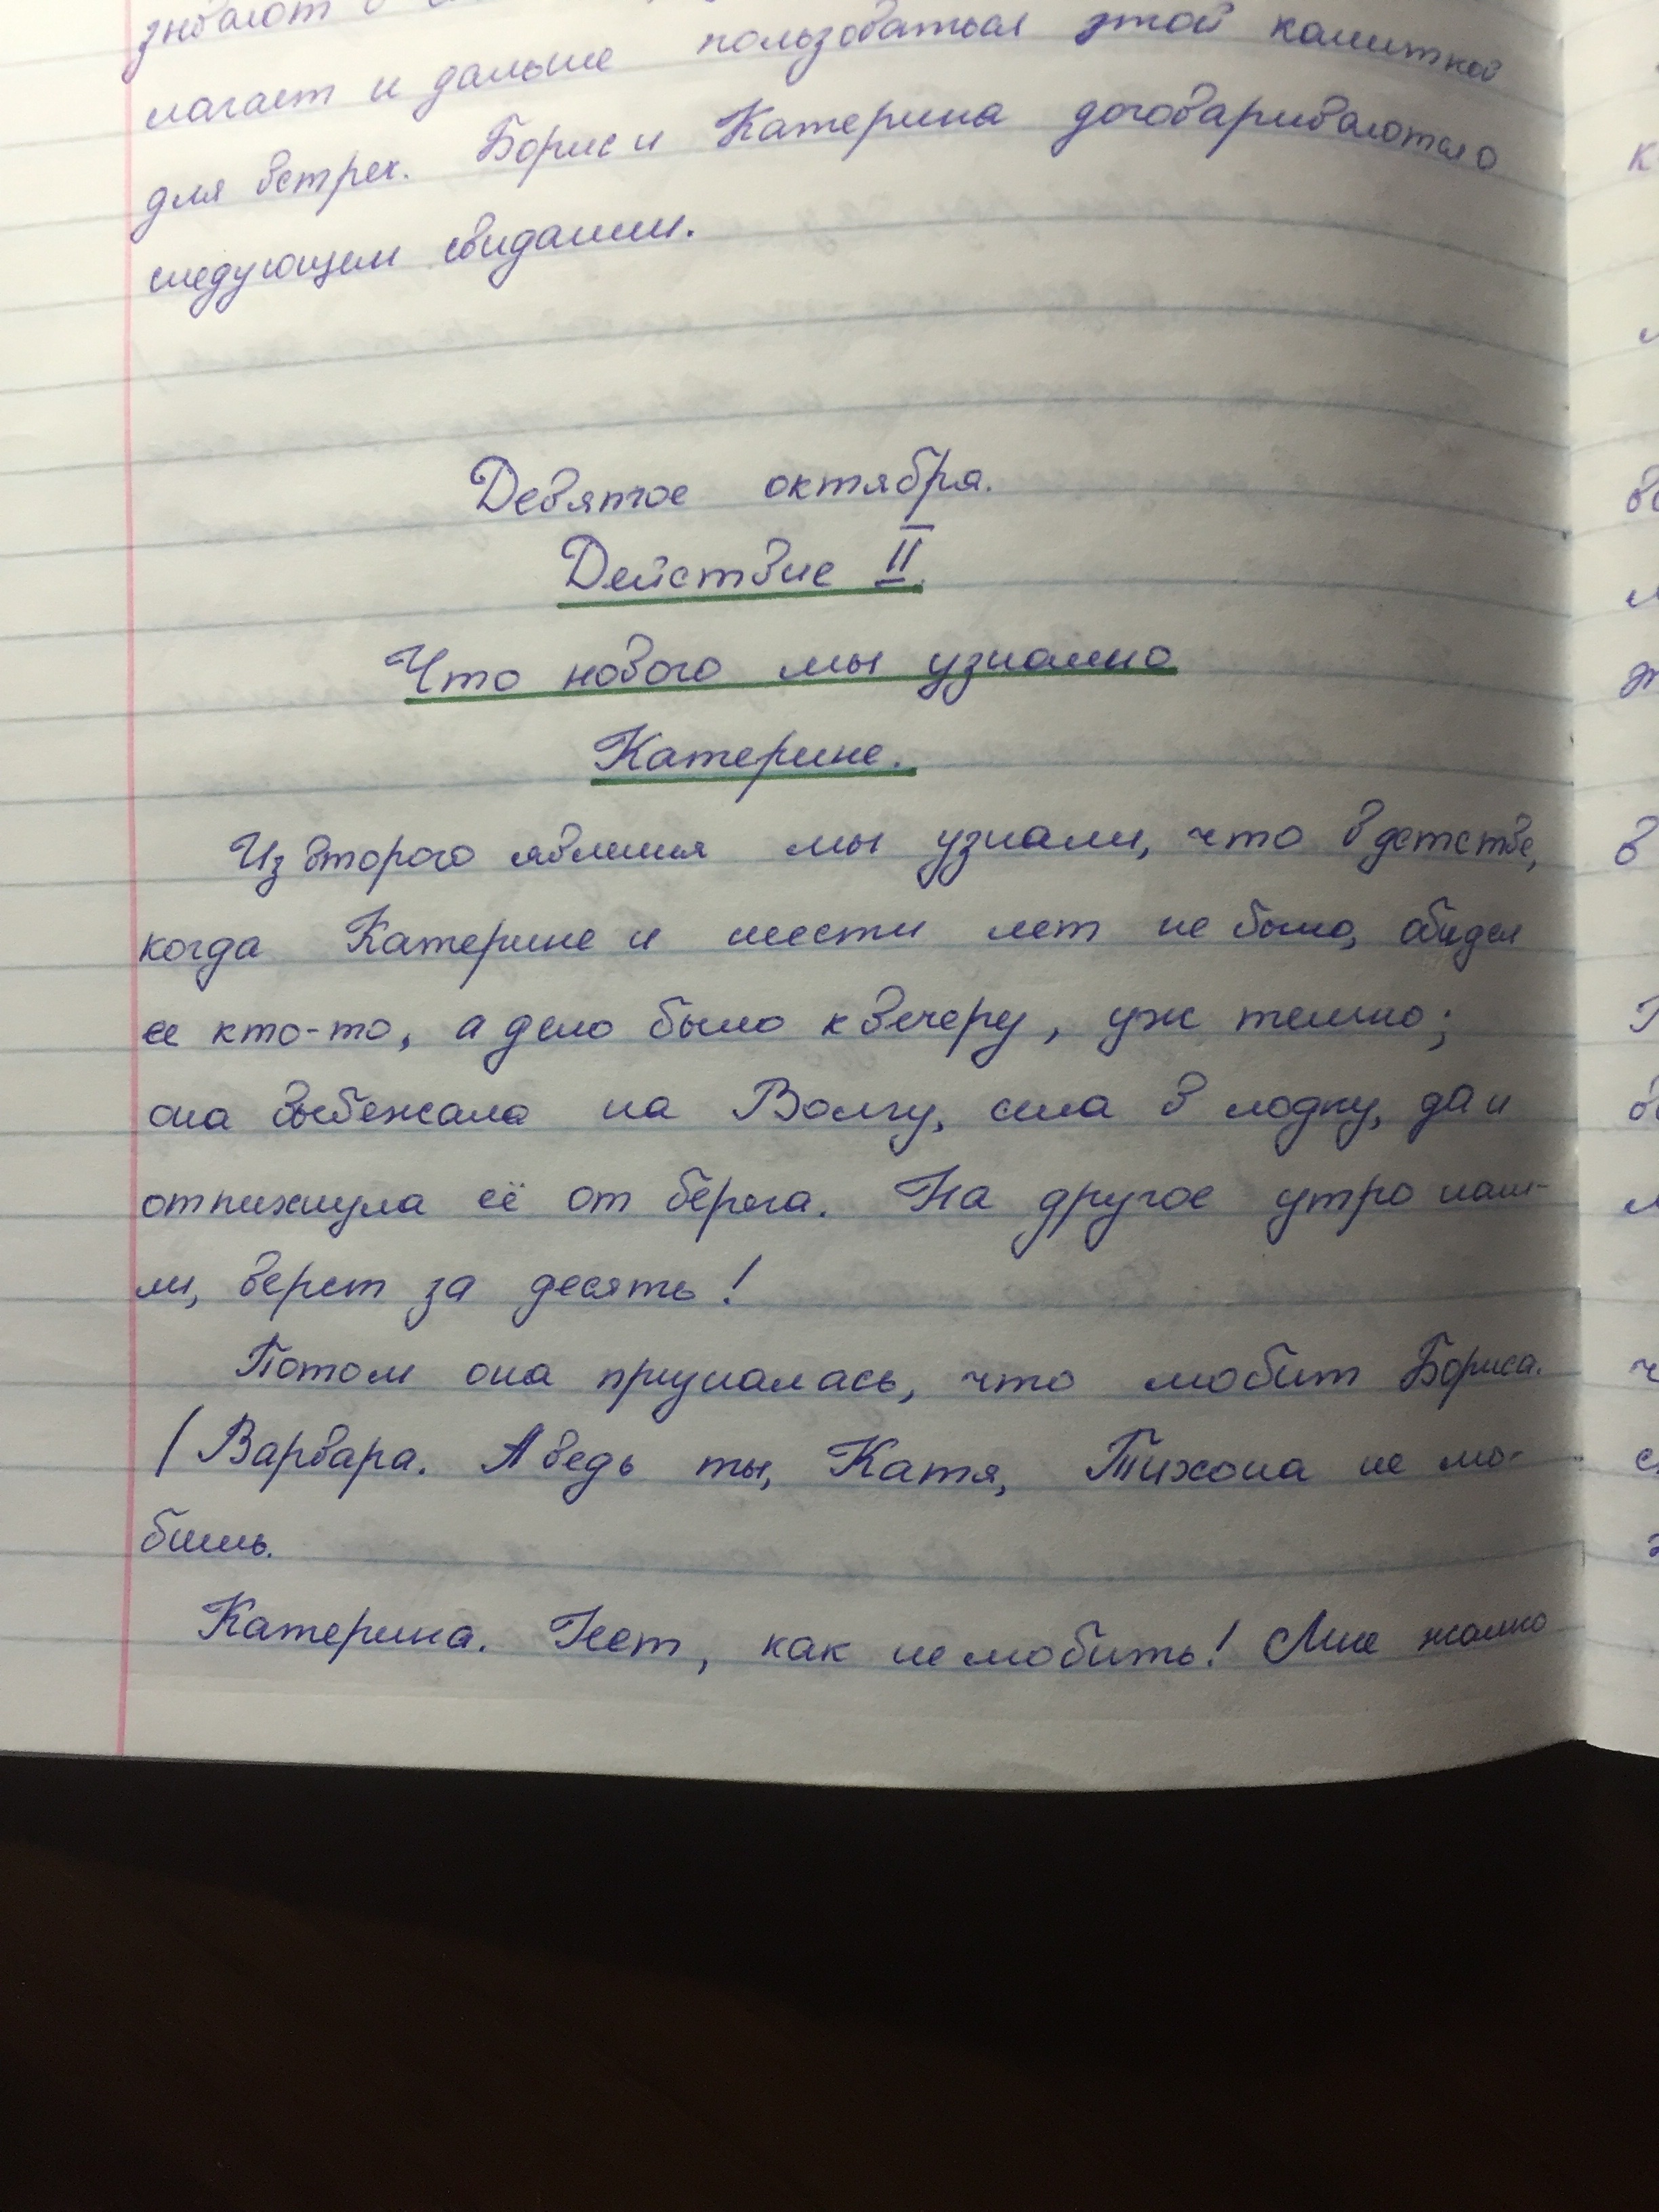 лагает и дальше пользоваться этой калиткой
для встреч. Борис и Катерина договариваются о
следующем свидании.
Девятое октября.
Действие II.
Что нового мы узнали о
Катерине.
Из второго явления мы узнали, что в детстве,
когда Катерине и шести лет не было, обидел
ее кто-то, а дело было к вечеру, уж темно;
она выбежала на Волгу, села в лодку, да и
отпихнула её от берега. На другое утро наш-
ли, верст за десять!
Потом она призналась, что любит Бориса.
(Варвара. А ведь ты, Катя, Тихона не лю-
бишь.
Катерина. Нет, как не любить! Мне жалко